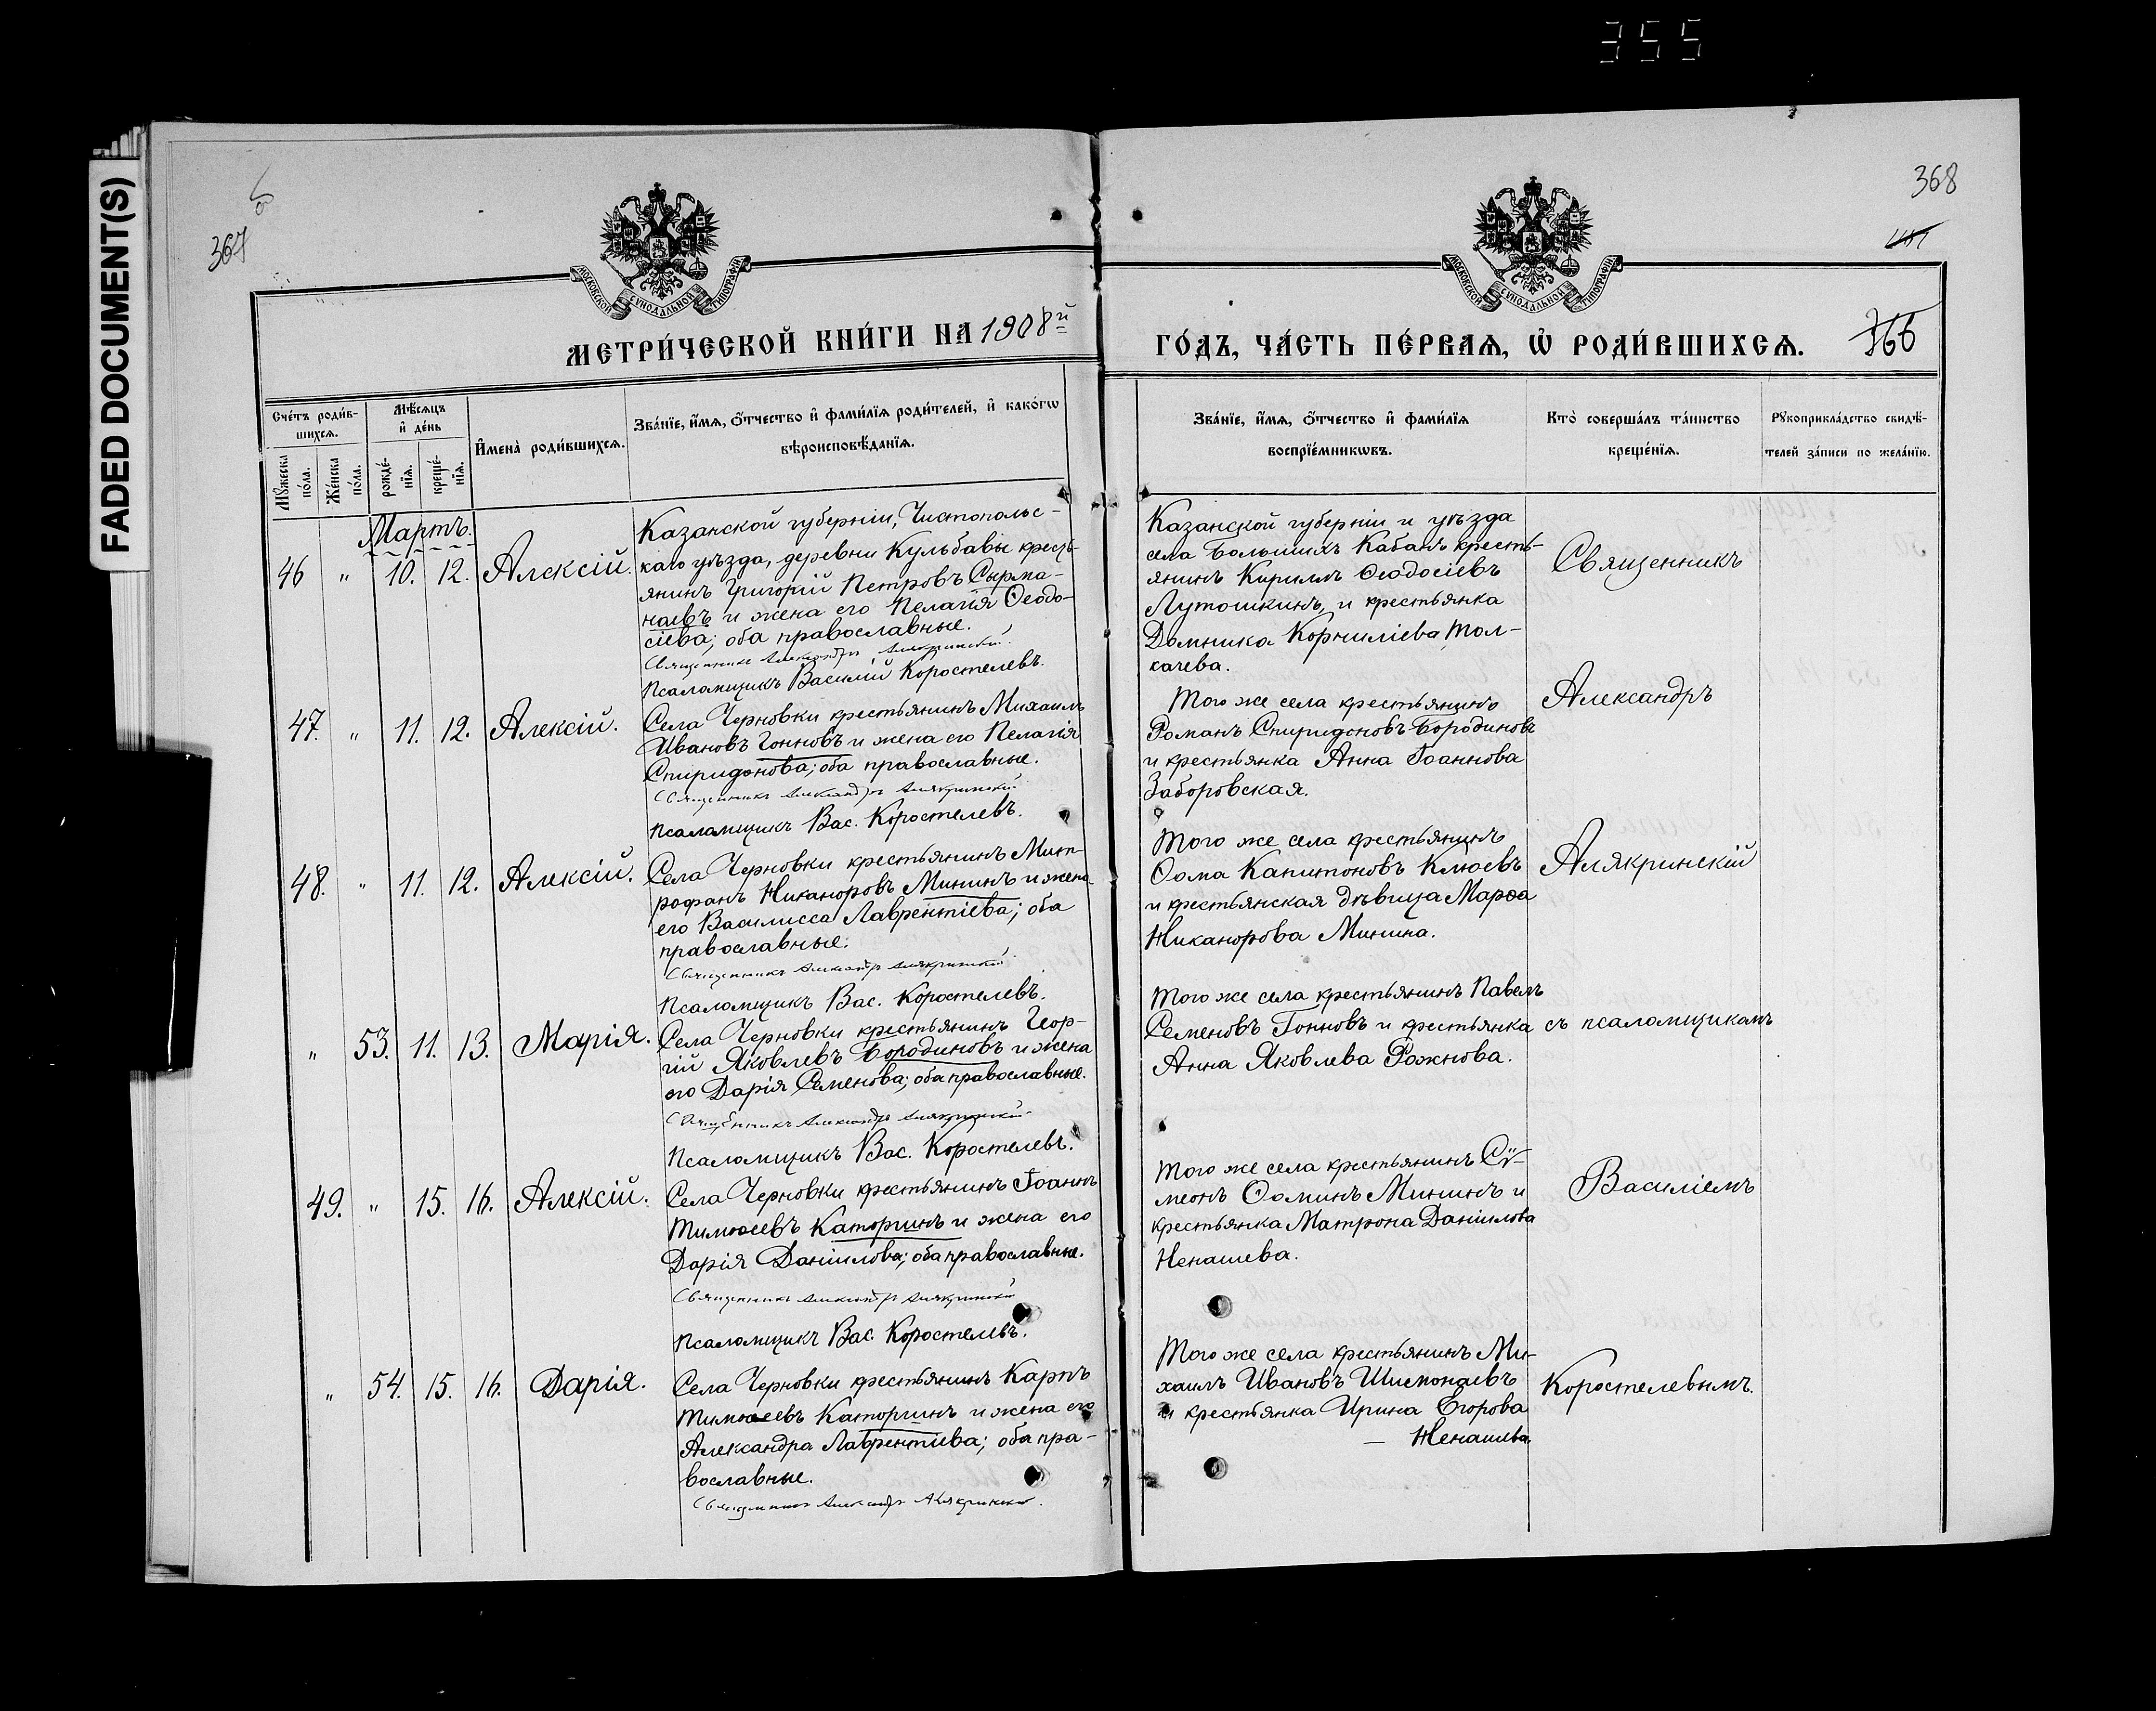 355
FADED DOCUMENT(S)
367
368
МОСКОВСКОЙ СѴНОДАЛЬНОЙ ТИПОГРАФІИ
МОСКОВСКОЙ СѴНОДАЛЬНОЙ ТИПОГРАФІИ
МЕТРИ́ЧЕСКОЙ КНИ́ГИ НА 1908й
ГО́ДЪ, ЧА́СТЬ ПЕ́РВАѦ, Ѡ҆ РОДИ́ВШИХСѦ. 366
Сче́тъ роди́в-
шихсѧ.
Мꙋ́жеска по́ла.
Же́нска по́ла.
Мѣ́сѧцъ
и҆ де́нь
рожде́-
нїѧ.
креще́-
нїѧ.
И҆мена̀ роди́вшихсѧ.
Зва́нїе, и҆́мѧ, ѻ҆́тчество и҆ фами́лїѧ роди́телей, и҆ како́гѡ
вѣроисповѣ́данїѧ.
Зва́нїе, и҆́мѧ, ѻ҆́тчество и҆ фами́лїѧ
воспрїе́мникѡвъ.
Кто̀ соверша́лъ та́инство
креще́нїѧ.
Рꙋкоприкла́дство свидѣ́-
телей за́писи по жела́нїю.
Мартъ.
46 " 10. 12. Алексій.
Казанской губерніи, Чистопольс-
каго уѣзда, деревни Кульбавы кресть-
янинъ Григорій Петровъ Сырма-
наевъ и жена его Пелагія Ѳеодо-
сіева; оба православные.
Священникъ Александръ Алякринскій
Псаломщикъ Василій Коростелевъ.
Казанской губерніи и уѣзда
села Большихъ Кабанъ кресть-
янинъ Кириллъ Ѳеодосіевъ
Лутошкинъ, и крестьянка
Домника Корниліева Тол-
качева.
Священникъ
47. " 11. 12. Алексій.
Села Черновки крестьянинъ Михаилъ
Ивановъ Гонновъ и жена его Пелагія
Спиридонова; оба православные.
Священникъ Александръ Алякринскій
Псаломщикъ Вас. Коростелевъ.
Того же села крестьянинъ
Романъ Спиридоновъ Бородиновъ
и крестьянка Анна Іоаннова
Заборовская.
Александръ
48. " 11. 12. Алексій.
Села Черновки крестьянинъ Мит-
рофанъ Никаноровъ Мининъ и жена
его Василисса Лаврентіева; оба
православные.
Священникъ Александръ Алякринскій
Псаломщикъ Вас. Коростелевъ.
Того же села крестьянинъ
Ѳома Капитоновъ Клюевъ
и крестьянская дѣвица Марѳа
Никанорова Минина.
Алякринскій
" 53. 11. 13. Марія.
Села Черновки крестьянинъ Геор-
гій Яковлевъ Бородиновъ и жена
его Дарія Семенова; оба православные.
Священникъ Александръ Алякринскій
Псаломщикъ Вас. Коростелевъ.
Того же села крестьянинъ Павелъ
Семеновъ Гонновъ и крестьянка
Анна Яковлева Рожнова.
съ псаломщикамъ
49. " 15. 16. Алексій.
Села Черновки крестьянинъ Іоаннъ
Тимоѳеевъ Каторгинъ и жена его
Дарія Даніилова; оба православные.
Священникъ Александръ Алякринскій
Псаломщикъ Вас. Коростелевъ.
Того же села крестьянинъ Сѵ-
меонъ Ѳоминъ Мининъ и
крестьянка Матрона Даніилова
Ненашева.
Василіемъ
" 54. 15. 16. Дарія.
Села Черновки крестьянинъ Карпъ
Тимоѳеевъ Каторгинъ и жена его
Александра Лаврентіева; оба пра-
вославные.
Священникъ Александръ Алякринскій.
Того же села крестьянинъ Ми-
хаилъ Ивановъ Шисмонаевъ
и крестьянка Ирина Егорова
— Ненашева
Коростелевымъ.